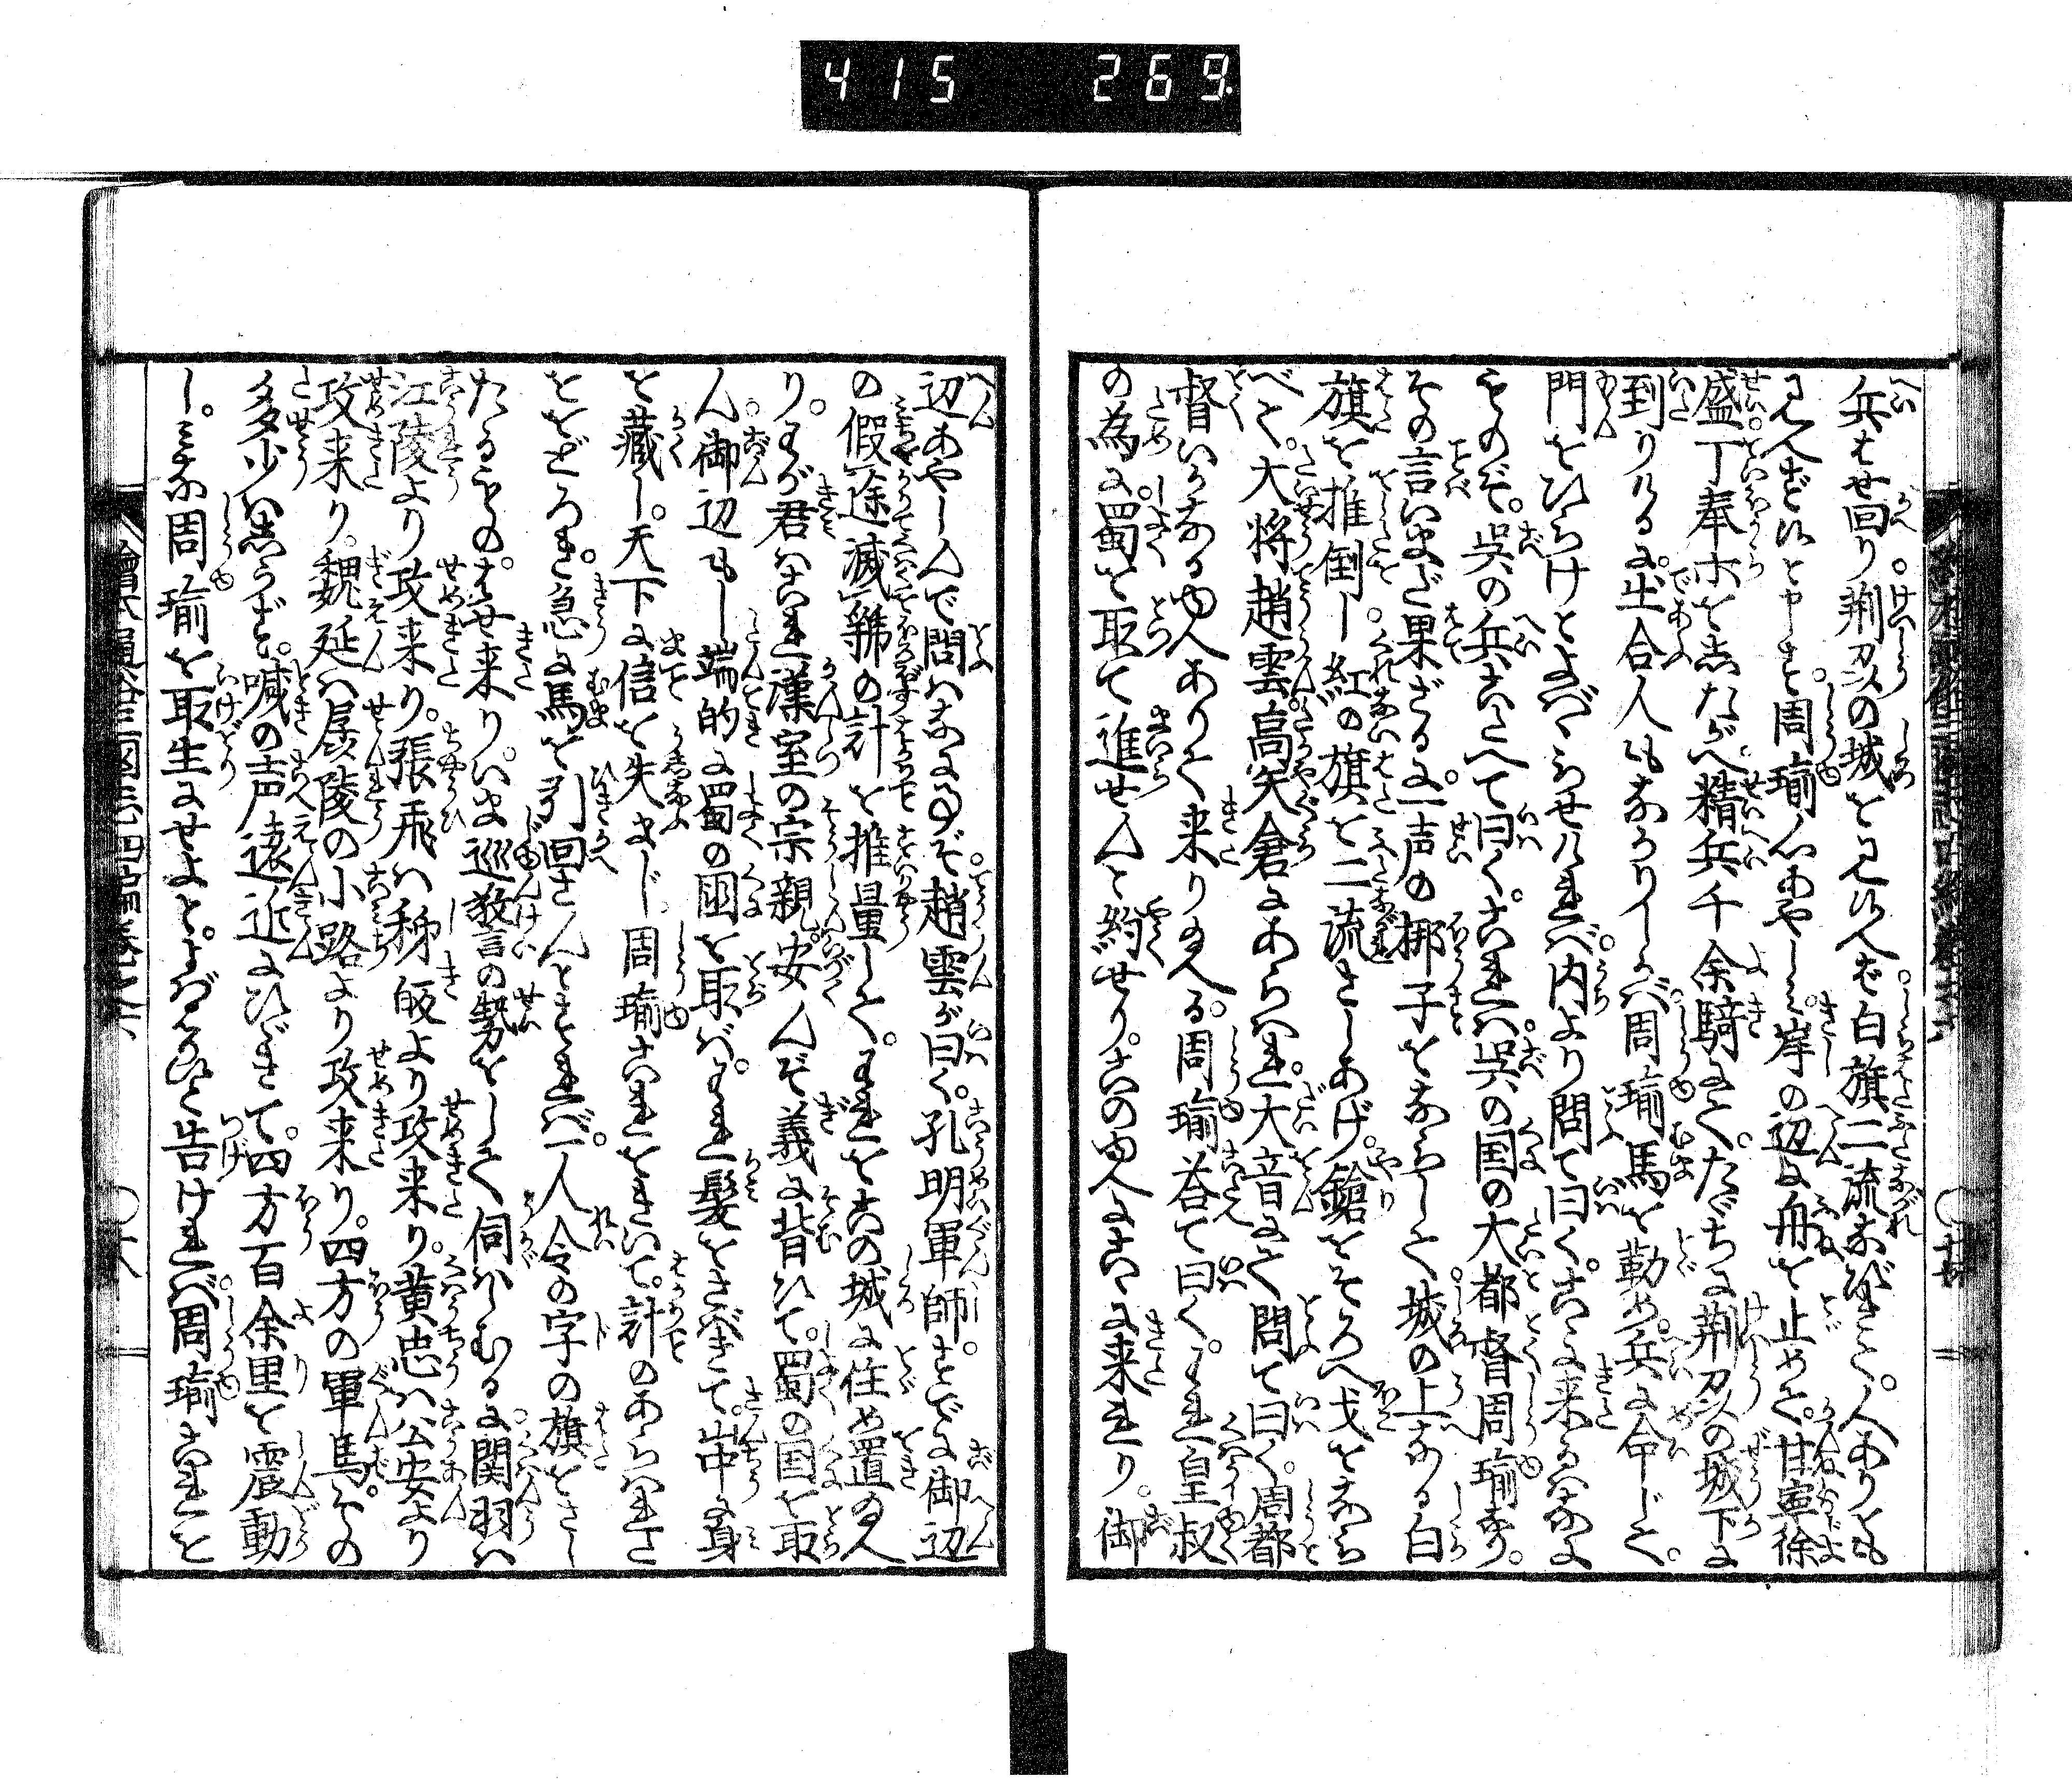 415 269
兵はせ回り荊州の城を見れば白旗二流なびきて。人ありとも
見へざれと申す。周瑜心あやしみ岸の辺に舟を止めて。甘寧徐
盛丁奉ホをしたがへ精兵千余騎にて。たゞちに荊州の城下に
到りけるに。出合人もなかりしかば。周瑜馬を勒め。兵に命じて。
門をひらけとよばゝらせければ。内より問て曰く。こゝに来るはなに
ものぞ。呉の兵こたへて曰く。これは呉の国の大都督周瑜なり。
その言いまだ果ざるに。一声の梆子をならして。城の上なる白
旗を推倒し。紅の旗を二流さしあげ。鎗をそろへ戈をなら
べて。大将趙雲。高矢倉にあらはれ。大音にて問て曰く。周都
督いかなる用ありて来り玉へる。周瑜荅て曰く。われ皇叔
の為に。蜀を取て進せんと約せり。この用にこゝに来れり。御
辺あやしんで問はなに事ぞ。趙雲が曰く。孔明軍師。すでに御辺
の假途滅虢の計を推量して。われをこの城に住め置玉へ
り。わが君はこれ漢室の宗親。安んぞ義に背ひて。蜀の国を取
ん。御辺もし端的に蜀の国を取ば。われ髪をさばきて。山中に身
を蔵し。天下に信を失まじ。周瑜これをきいて。計のあらはれさ
をおどろき。急に馬を引回さんとすれば。一人令の字の旗をさし
たるもの。はせ来り。いま巡警の勢をして伺はしむるに。関羽は
江陵より攻来り。張飛は秭皈より攻来り。黄忠は公安より
攻来り。魏延は孱陵の小路より攻来り。四方の軍馬。その
多少はしらず。喊の声遠近にひゞきて。四方百余里を震動
し。みな周瑜を取生にせよと。よばゝると告ければ。周瑜これを
繪本通俗三國志四編巻之六